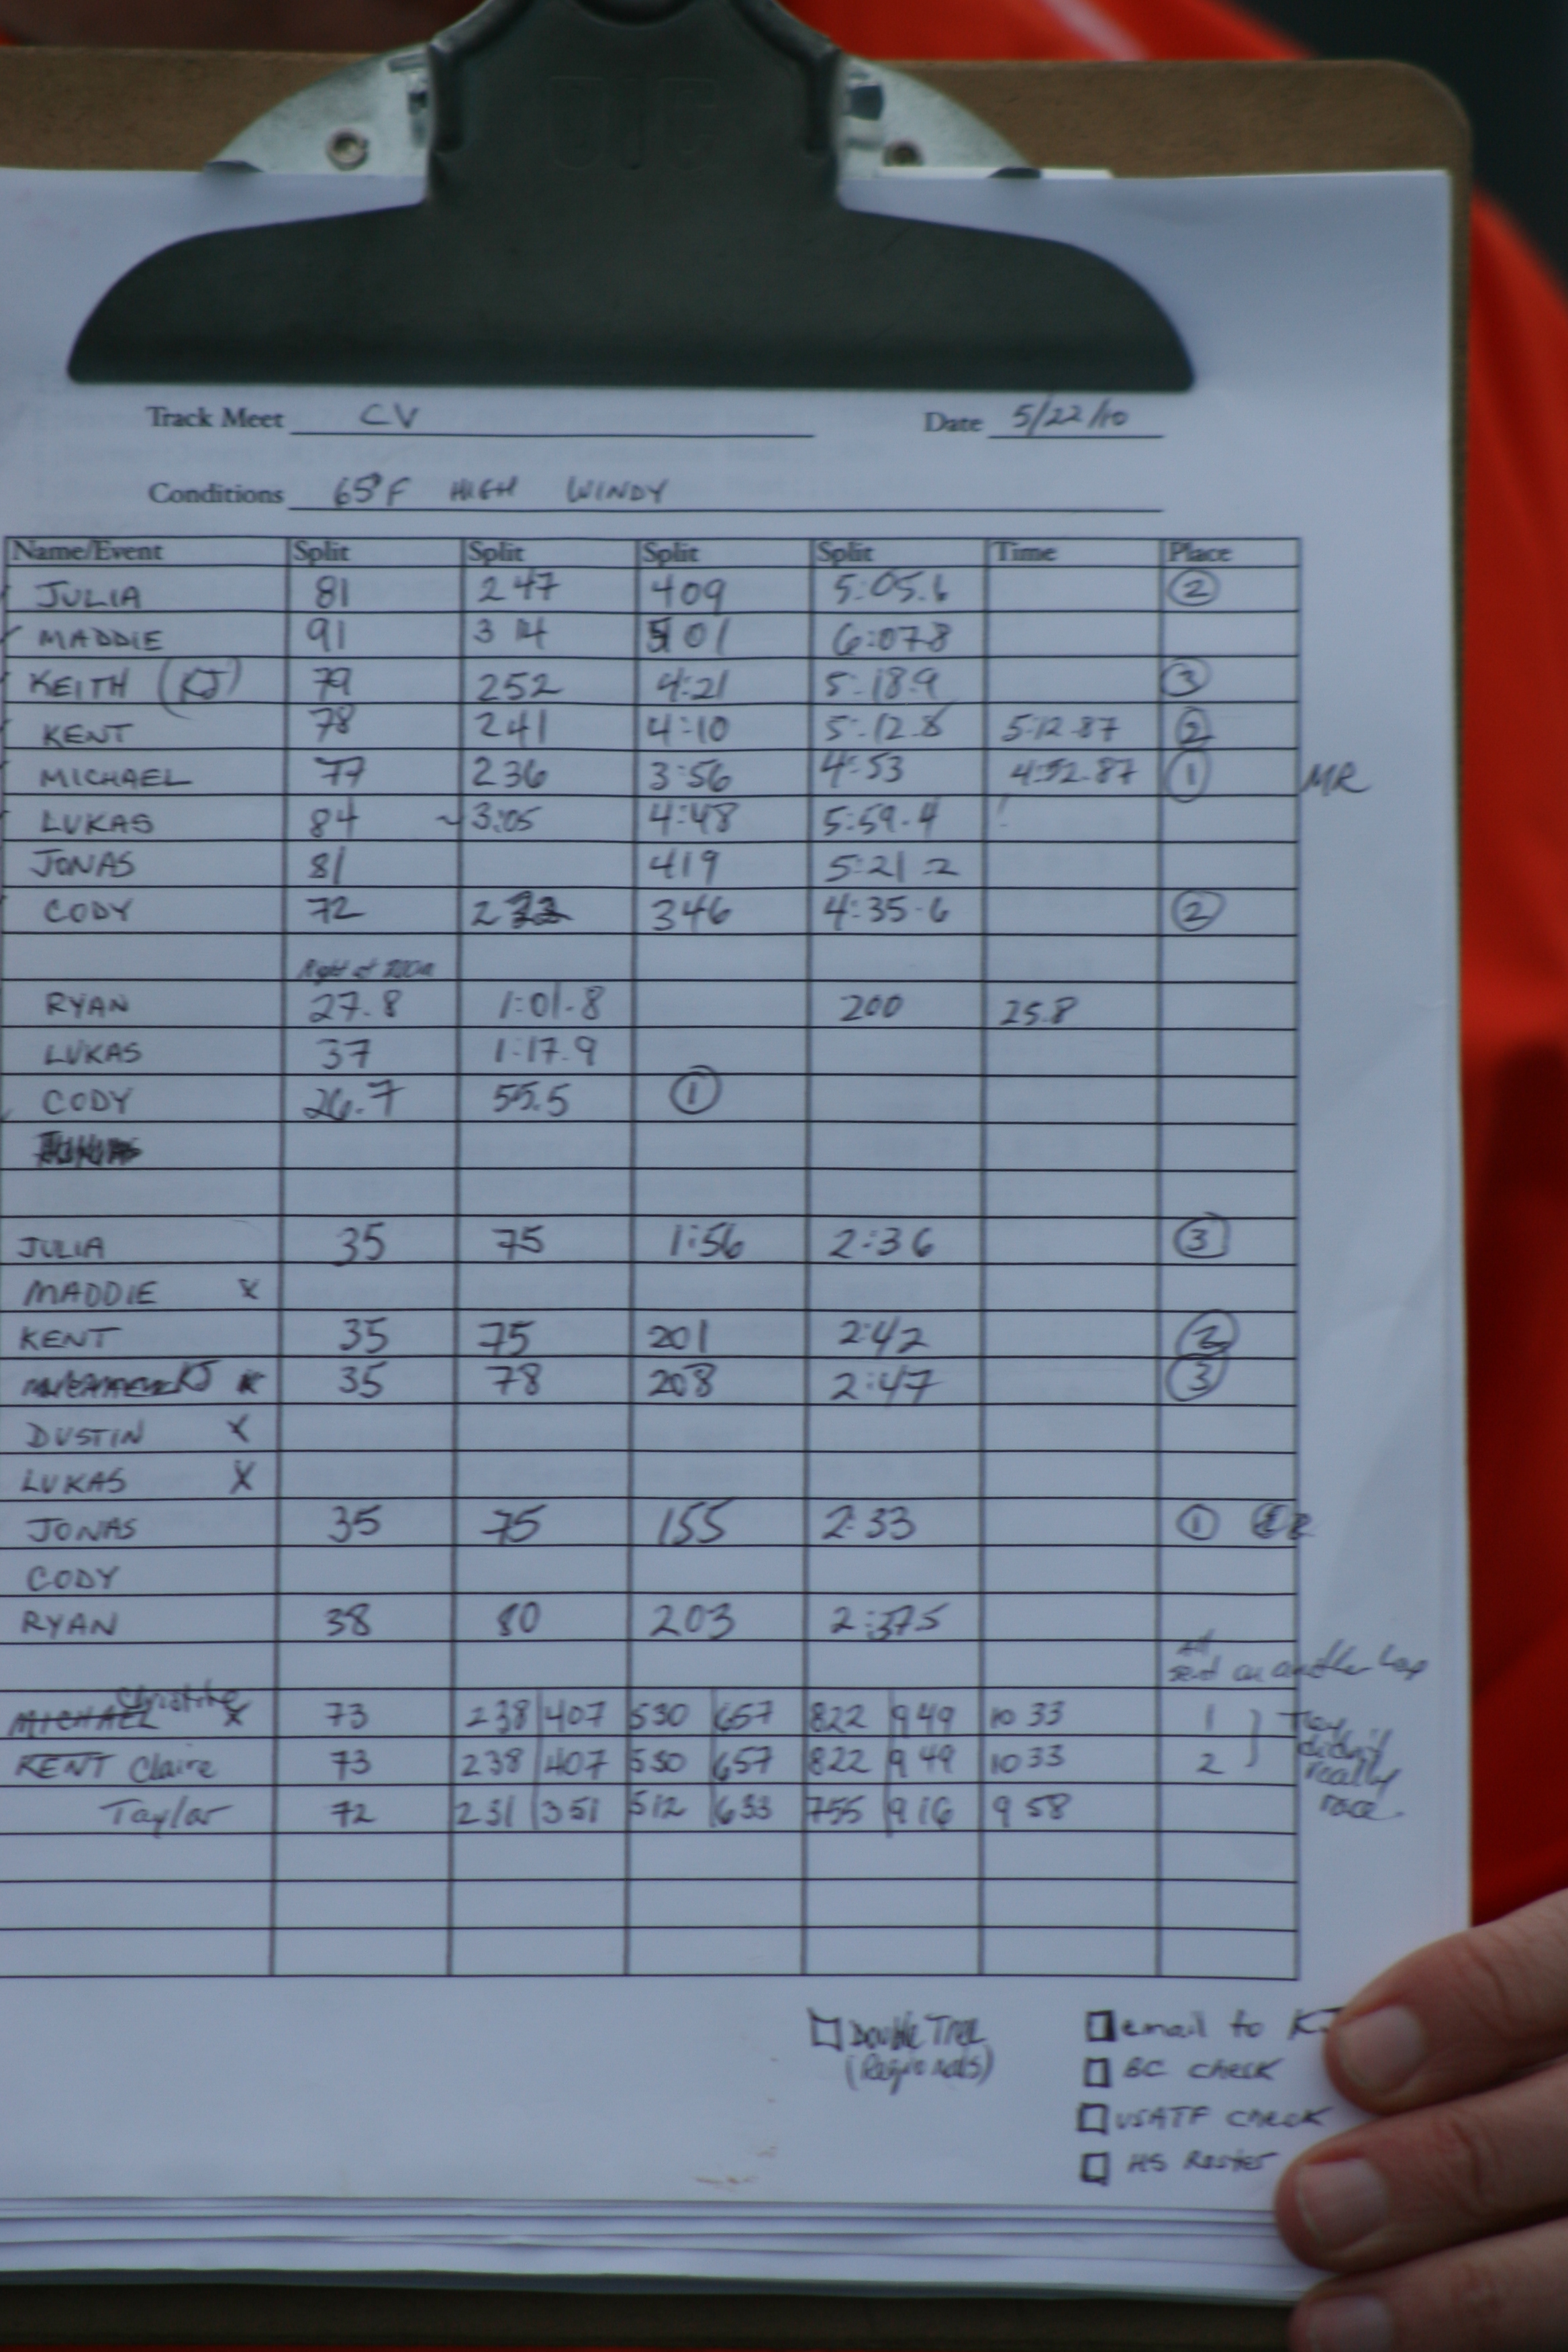 Track Meet CV Date 5/22/10
Conditions 65°F HIGH WINDY
Name/Event Split Split Split Split Time Place
JULIA 81 247 409 5:05.6 2
MADDIE 91 3 14 501 6:07.8
KEITH (KJ) 79 252 4:21 5:18.9 3
KENT 78 241 4:10 5:12.8 5:12.87 2
MICHAEL 77 236 3:56 4:53 4:52.87 1 MR
LUKAS 84 ~3:05 4:48 5:59.4 !
JONAS 81 419 5:21.2
CODY 72 2 346 4:35.6 2
Right at 200m
RYAN 27.8 1:01.8 200 25.8
LUKAS 37 1:17.9
CODY 26.7 55.5 1
JULIA 35 75 1:56 2:36 3
MADDIE x
KENT 35 75 201 2:42 2
KJ 35 78 208 2:47 3
DUSTIN x
LUKAS x
JONAS 35 75 155 2:33 1
CODY
RYAN 38 80 203 2:37.5
All
sent on another lap
Christine
MICHAEL x 73 238 407 530 657 822 949 1033 1 } They
KENT Claire 73 238 407 530 657 822 949 1033 2 didn't really
Taylor 72 231 351 512 633 755 916 958 race.
Double Tree
(Regionals)
email to KJ
BC check
USATF check
HS Roster